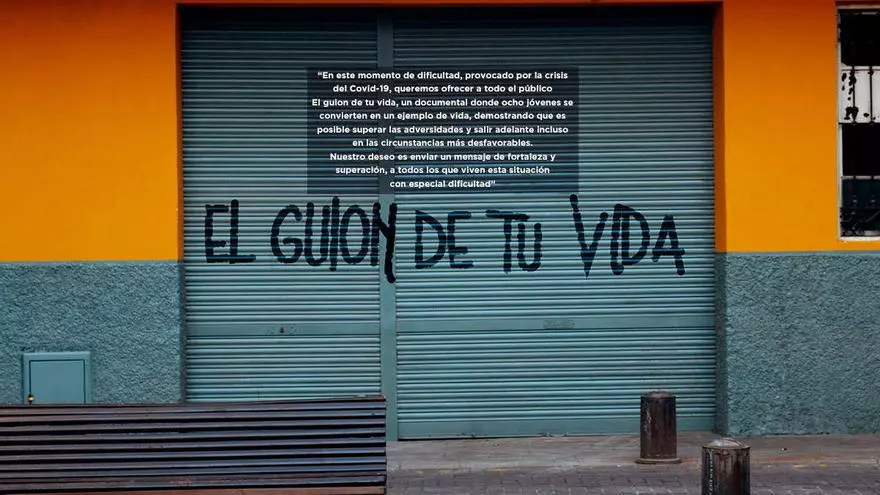 “En este momento de dificultad, provocado por la crisis
del Covid-19, queremos ofrecer a todo el público
El guion de tu vida, un documental donde ocho jóvenes se
convierten en un ejemplo de vida, demostrando que es
posible superar las adversidades y salir adelante incluso
en las circunstancias más desfavorables.
Nuestro deseo es enviar un mensaje de fortaleza y
superación, a todos los que viven esta situación
con especial dificultad”
EL GUION DE TU VIDA